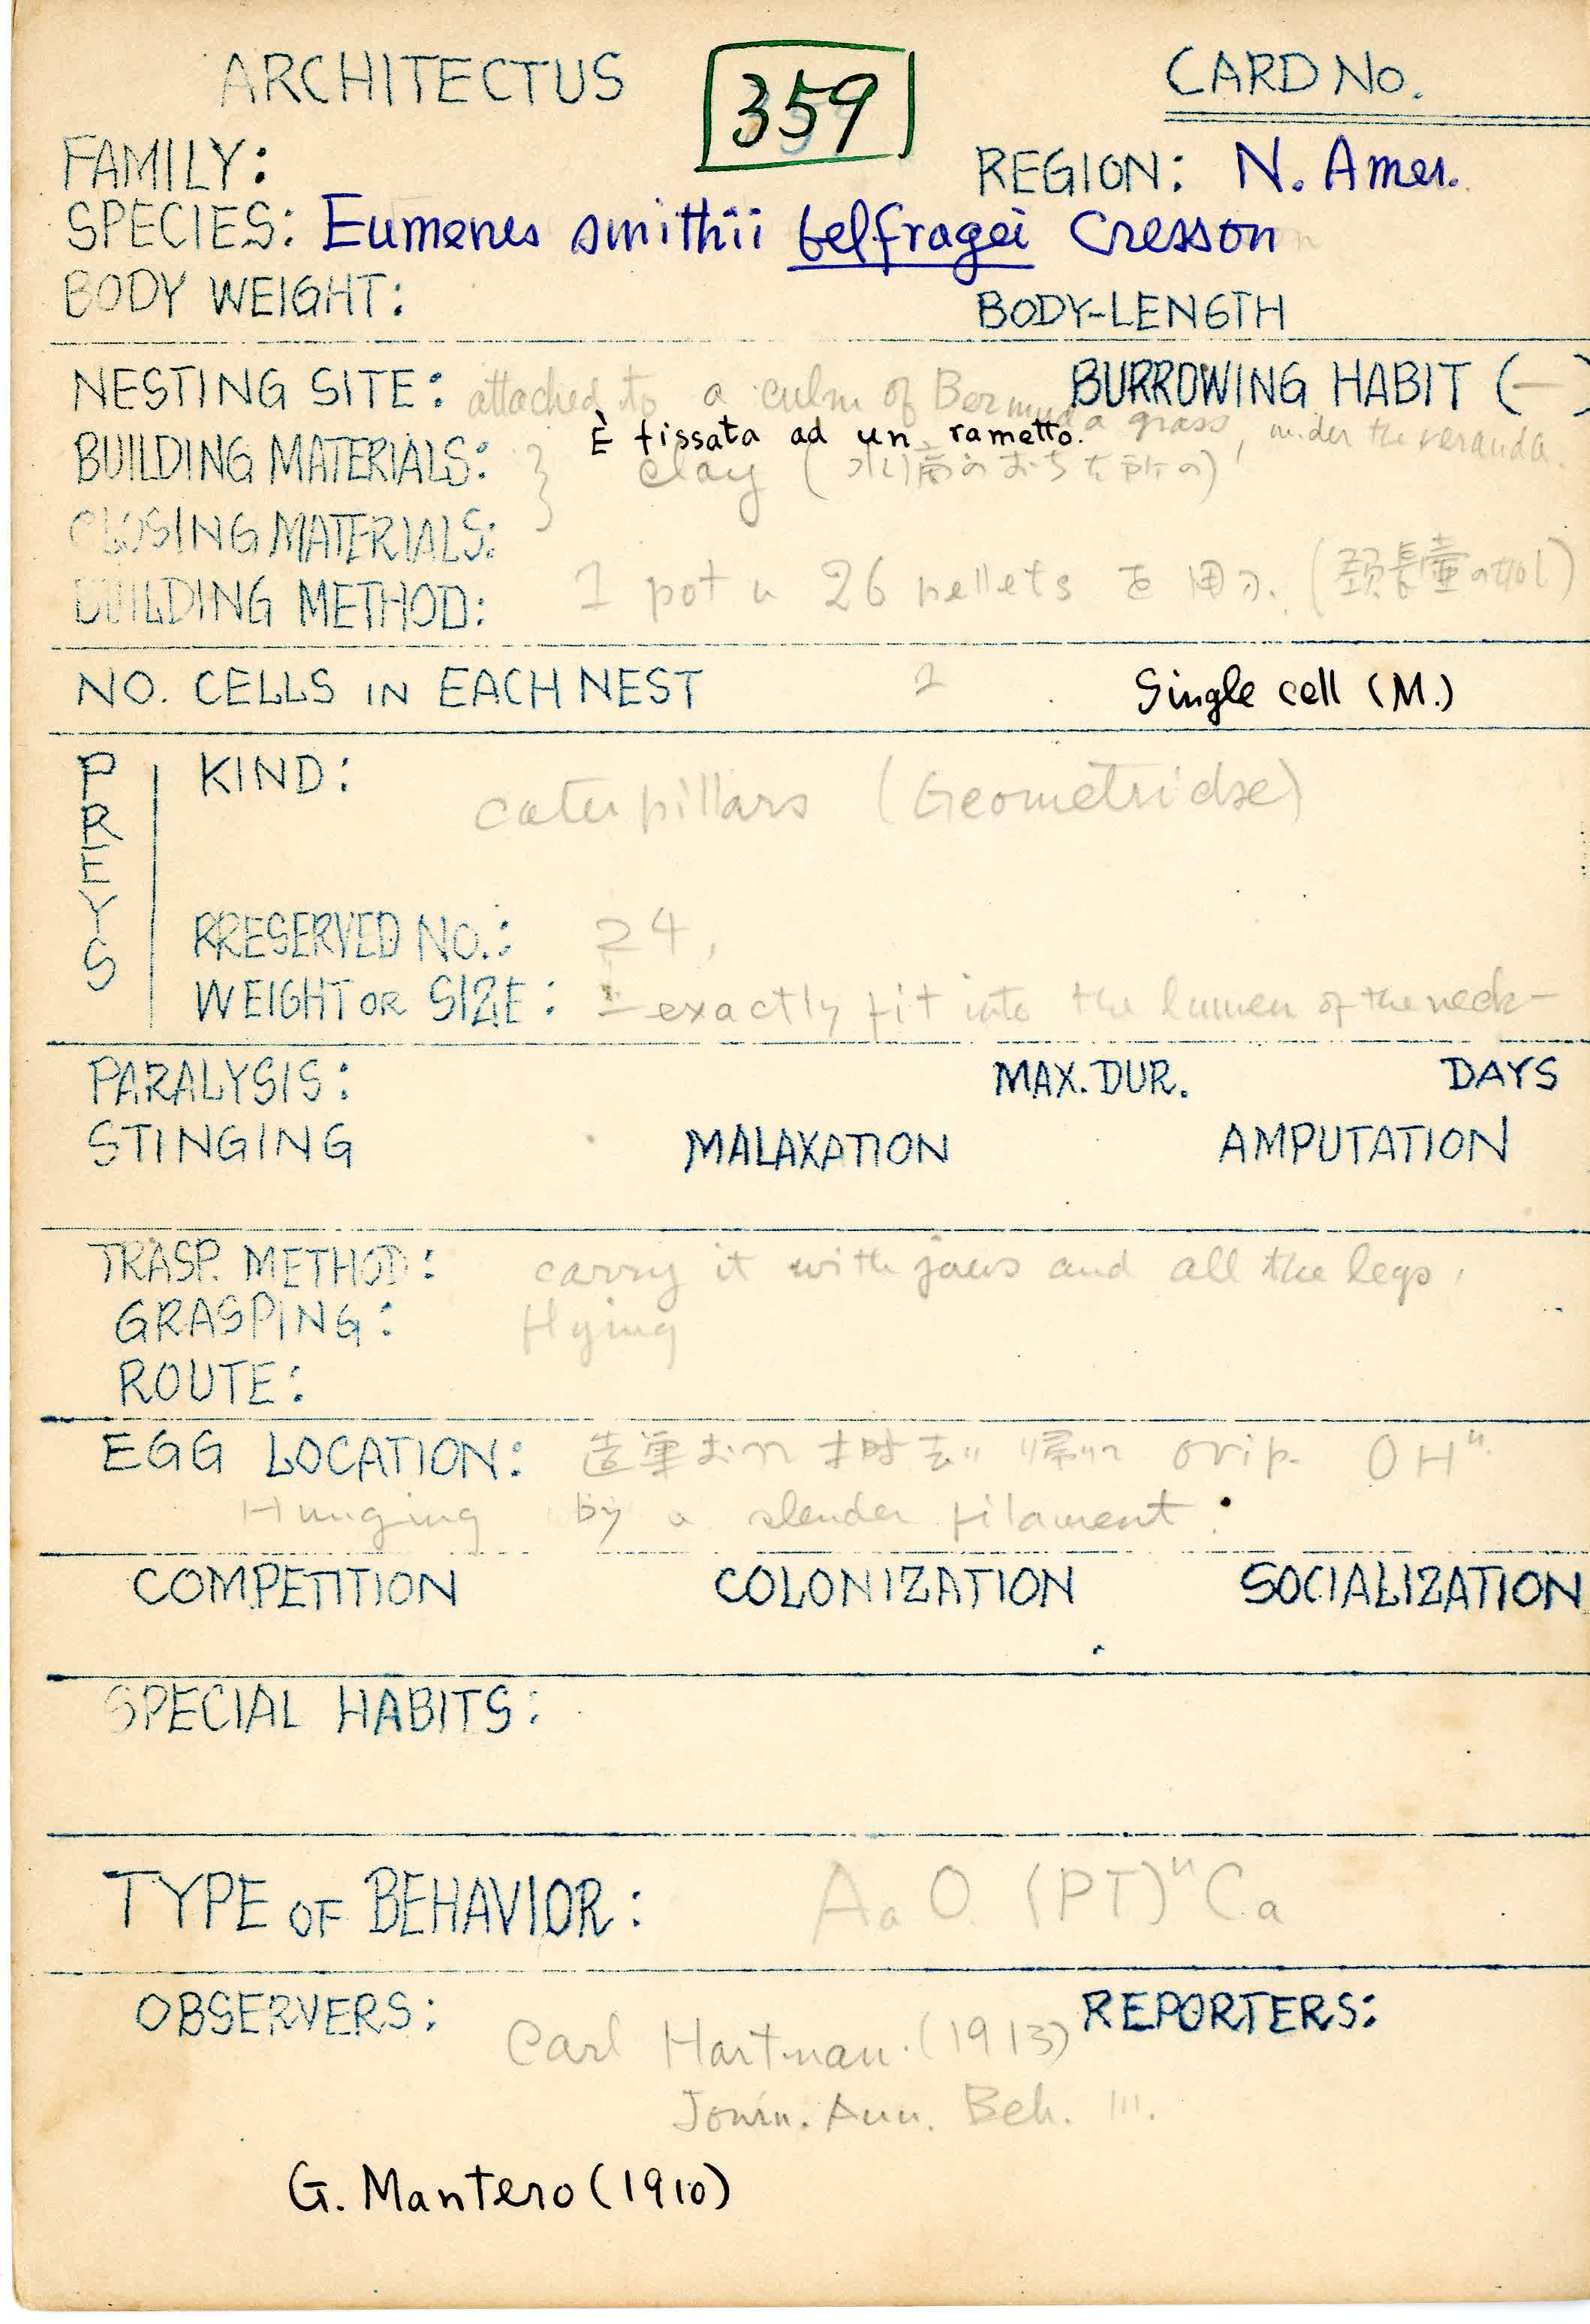 ARCHITECTUS 359 CARD No.
FAMILY: REGION: N. Amer.
SPECIES: Eumenes smithii belfragei Cresson
BODY WEIGHT: BODY-LENGTH
NESTING SITE: attached to a culm of Bermuda grass, under the veranda. BURROWING HABIT (—)
È fissata ad un rametto.
BUILDING MATERIALS: } clay
CLOSING MATERIALS:
BUILDING METHOD: 1 pot 26 pellets を用う. (頚長壷の如し)
NO. CELLS IN EACH NEST Single cell (M.)
PREYS
KIND: caterpillars (Geometridae)
PRESERVED NO.: 24,
WEIGHT OR SIZE: — exactly fit into the lumen of the neck —
PARALYSIS: MAX. DUR. DAYS
STINGING MALAXATION AMPUTATION
TRASP. METHOD: carry it with jaws and all the legs.
GRASPING: flying
ROUTE:
EGG LOCATION: 造巣 ovip. OH"
Hunging by a slender filament.
COMPETITION COLONIZATION SOCIALIZATION
SPECIAL HABITS:
TYPE OF BEHAVIOR: Aa O (PT)ⁿ Ca
OBSERVERS: Carl Hartman. (1913) REPORTERS:
Journ. Ann. Beh. III.
G. Mantero (1910)